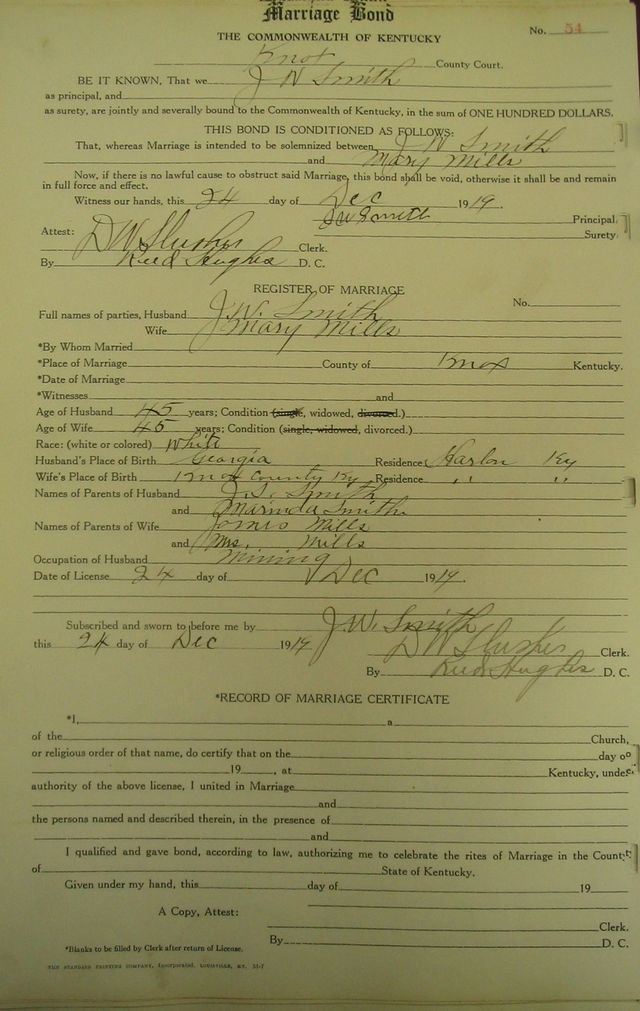 Marriage Bond
No. 54
THE COMMONWEALTH OF KENTUCKY
Knox County Court.
BE IT KNOWN, That we J W Smith
as principal, and
as surety, are jointly and severally bound to the Commonwealth of Kentucky, in the sum of ONE HUNDRED DOLLARS.
THIS BOND IS CONDITIONED AS FOLLOWS:
That, whereas Marriage is intended to be solemnized between J W Smith
and Mary Mills
Now, if there is no lawful cause to obstruct said Marriage, this bond shall be void, otherwise it shall be and remain
in full force and effect.
Witness our hands, this 24 day of Dec 1919.
J W Smith Principal.
Surety.
Attest: D W Slusher Clerk.
By Reed Hughes D. C.
REGISTER OF MARRIAGE
No.
Full names of parties, Husband J. W. Smith
Wife Mary Mills
*By Whom Married
*Place of Marriage County of Knox Kentucky.
*Date of Marriage
*Witnesses and
Age of Husband 45 years; Condition (single, widowed, divorced.)
Age of Wife 45 years; Condition (single, widowed, divorced.)
Race: (white or colored) White
Husband's Place of Birth Georgia Residence Harlan Ky
Wife's Place of Birth Knox County Ky Residence " "
Names of Parents of Husband J. S. Smith
and Marinda Smith
Names of Parents of Wife James Mills
and Mrs. Mills
Occupation of Husband Mining
Date of License 24 day of Dec 1919.
Subscribed and sworn to before me by J. W. Smith
this 24 day of Dec 1919 D W Slusher Clerk.
By Reed Hughes D. C.
*RECORD OF MARRIAGE CERTIFICATE
*I, a
of the Church,
or religious order of that name, do certify that on the day of
19 , at Kentucky, under
authority of the above license, I united in Marriage
and
the persons named and described therein, in the presence of
and
I qualified and gave bond, according to law, authorizing me to celebrate the rites of Marriage in the County
of State of Kentucky.
Given under my hand, this day of 19
A Copy, Attest:
Clerk.
By D. C.
*Blanks to be filled by Clerk after return of License.
THE STANDARD PRINTING COMPANY, Incorporated, LOUISVILLE, KY.